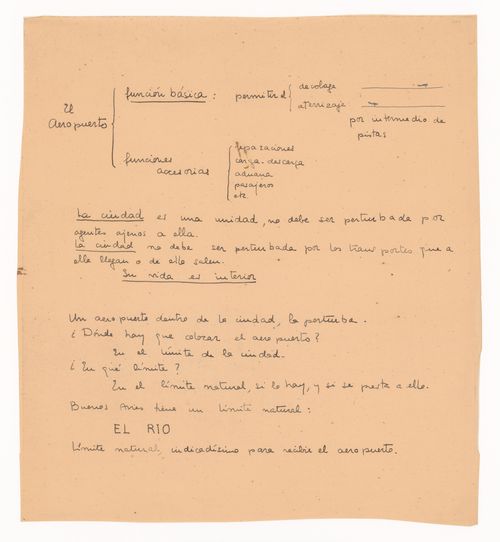 El Aeropuerto
función básica : permitir el
decolage
aterrizaje
por intermedio de
pistas
funciones
accesorias
reparaciones
carga - descarga
aduana
pasajeros
etc.
La ciudad es una unidad, no debe ser perturbada por
agentes ajenos a ella.
La ciudad no debe ser perturbada por los transportes que a
ella llegan o de ella salen.
Su vida es interior
Un aeropuerto dentro de la ciudad, la perturba.
¿Dónde hay que colocar el aeropuerto?
En el límite de la ciudad.
¿En qué límite?
En el límite natural, si lo hay, y si se presta a ello.
Buenos Aires tiene un límite natural:
EL RIO
Límite natural, indicadísimo para recibir el aeropuerto.